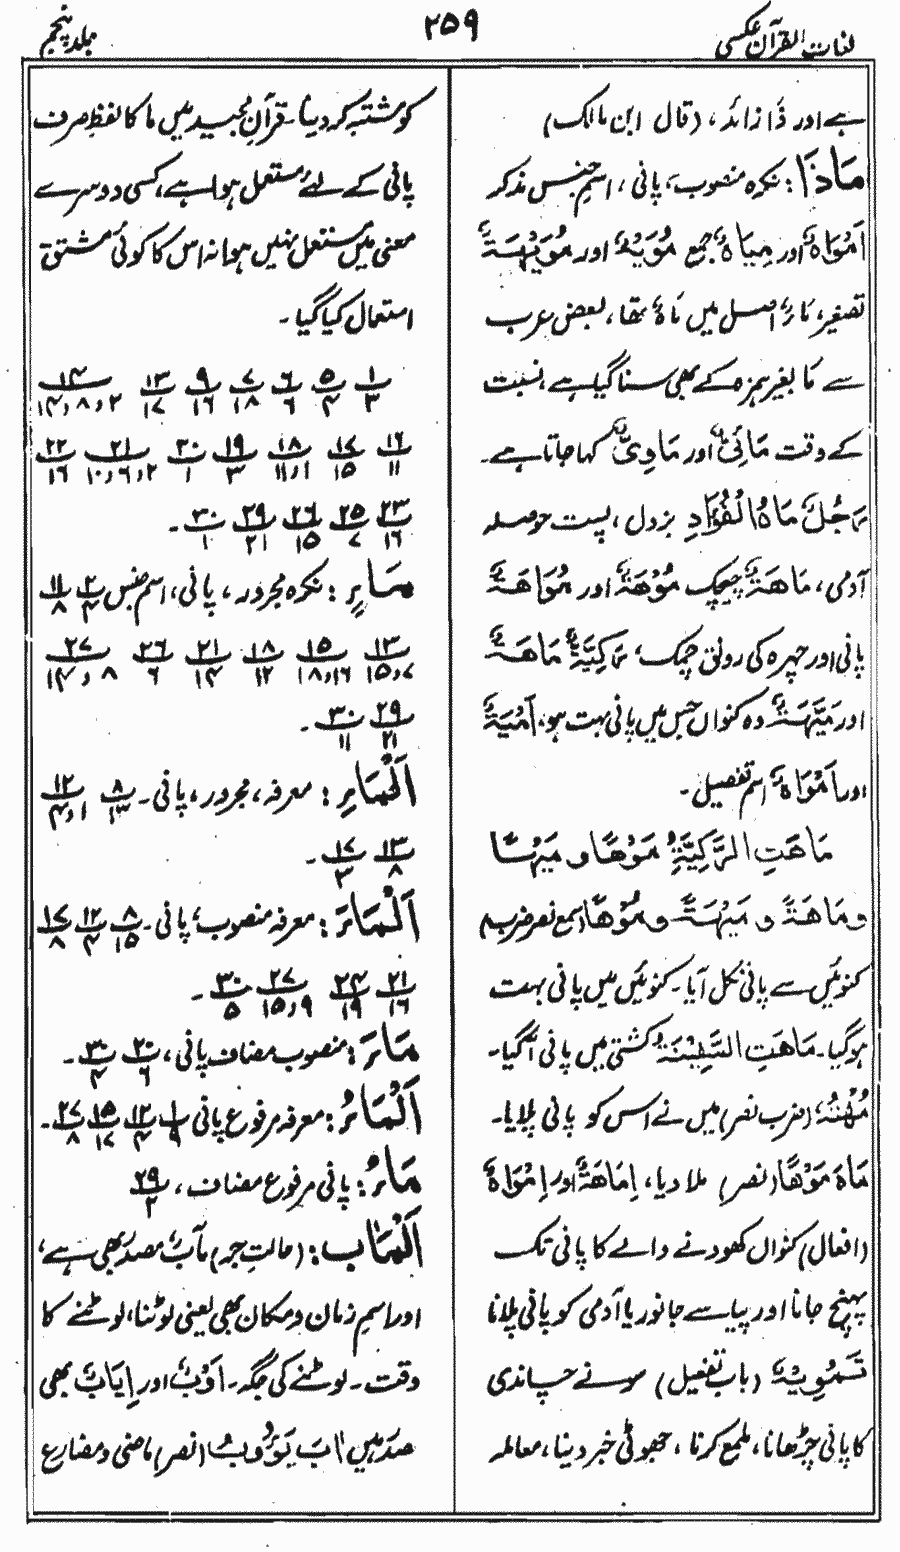 لغات القرآن عکسی
۲۵۹
جلد پنجم
ہے اور ذَا زائد، (قال ابن مالک)
مَاءً: نکرہ منصوب، پانی، اسم جنس مذکر
اَمْوَاہٌ اور مِیَاہٌ جمع مُوَیْہٌ اور مُوَیْہَۃٌ
تصغیر، مَاءٌ اصل میں مَاہٌ تھا، بعض عرب
سے مَا بغیر ہمزہ کے بھی سنا گیا ہے، نسبت
کے وقت مَائِیٌّ اور مَاوِیٌّ کہا جاتا ہے۔
رَجُلٌ مَاہُ الْفُؤَادِ بزدل، پست حوصلہ
آدمی، مَاھَۃٌ چیچک مُوْھَۃٌ اور مُوَاھَۃٌ
پانی اور چہرہ کی رونق چمک، رَکِیَّۃٌ مَاھَۃٌ
اور مَیِّہَۃٌ وہ کنواں جس میں پانی بہت ہو، اَمْیَہُ
اور اَمْوَاہٌ اسم تفصیل۔
مَاھَتِ الرَّکِیَّۃُ مَوْھًا و مَیْہًا
و مَاھَۃً و مَیْہَۃً و مُؤْھًا (سمع نصر ضرب)
کنوئیں سے پانی نکل آیا۔ کنوئیں میں پانی بہت
ہو گیا۔ مَاھَتِ السَّفِیْنَۃُ کشتی میں پانی آ گیا۔
مُہْتُہٗ، (ضرب نصر) میں نے اس کو پانی پلایا۔
مَاہَ مَوْھًا (نصر) ملا دیا، اِمَاھَۃٌ اور اِمْوَاہٌ
(افعال) کنواں کھودنے والے کا پانی تک
پہنچ جانا اور پیاسے جانور یا آدمی کو پانی پلانا
تَمْوِیْہٌ (باب تفعیل) سونے چاندی
کا پانی چڑھانا، ملمع کرنا، جھوٹی خبر دینا، معاملہ
کو مشتبہ کر دینا۔ قرآن مجید میں ما کا لفظ صرف
پانی کے لئے مستعمل ہوا ہے، کسی دوسرے
معنی میں مستعمل نہیں ہوا نہ اس کا کوئی مشتق
استعمال کیا گیا۔
۱/۳ ۵/۴ ۶/۶ ۷/۱۸ ۹/۱۶ ۱۳/۱۷ ۱۴/۲،۸،۱۴
۱۶/۱۱ ۱۷/۱۵ ۱۸/۱،۱۱ ۱۹/۳ ۲۰/۱ ۲۱/۲،۶،۱۰ ۲۲/۱۶
۲۳/۱۶ ۲۵/۷ ۲۶/۱۵ ۲۹/۲۱ ۳۰/۱ ۔
مَاءٍ: نکرہ مجرور، پانی، اسم جنس ۲/۴ ۱۱/۸
۱۳/۷،۱۵ ۱۵/۱۶،۱۸ ۱۸/۱۲ ۲۱/۱۴ ۲۶/۶ ۲۷/۸،۱۴
۲۹/۲۱ ۳۰/۱۱ ۔
اَلْمَاءِ: معرفہ، مجرور، پانی۔ ۸/۱۳ ۱۲/۱،۴
۱۳/۸ ۱۷/۳ ۔
اَلْمَاءَ: معرفہ منصوب، پانی۔ ۸/۱۵ ۱۲/۴ ۱۷/۸
۲۱/۱۶ ۲۴/۱۹ ۲۷/۹،۱۵ ۳۰/۵ ۔
مَاءَ: منصوب مضاف پانی، ۲۰/۶ ۳۰/۴ ۔
اَلْمَاءُ: معرفہ مرفوع پانی ۱/۹ ۱۲/۴ ۱۵/۱۷ ۲۷/۸ ۔
مَاءُ: پانی مرفوع مضاف، ۲۹/۲
اَلْمَاٰبِ: (حالت جر) مآبٌ مصدر بھی ہے،
اور اسم زمان و مکان بھی یعنی لوٹنا، لوٹنے کا
وقت۔ لوٹنے کی جگہ۔ اَوْبٌ اور اِیَابٌ بھی
صدر ہیں اٰبَ یَؤُوْبُ (نصر) ماضی و مضارع